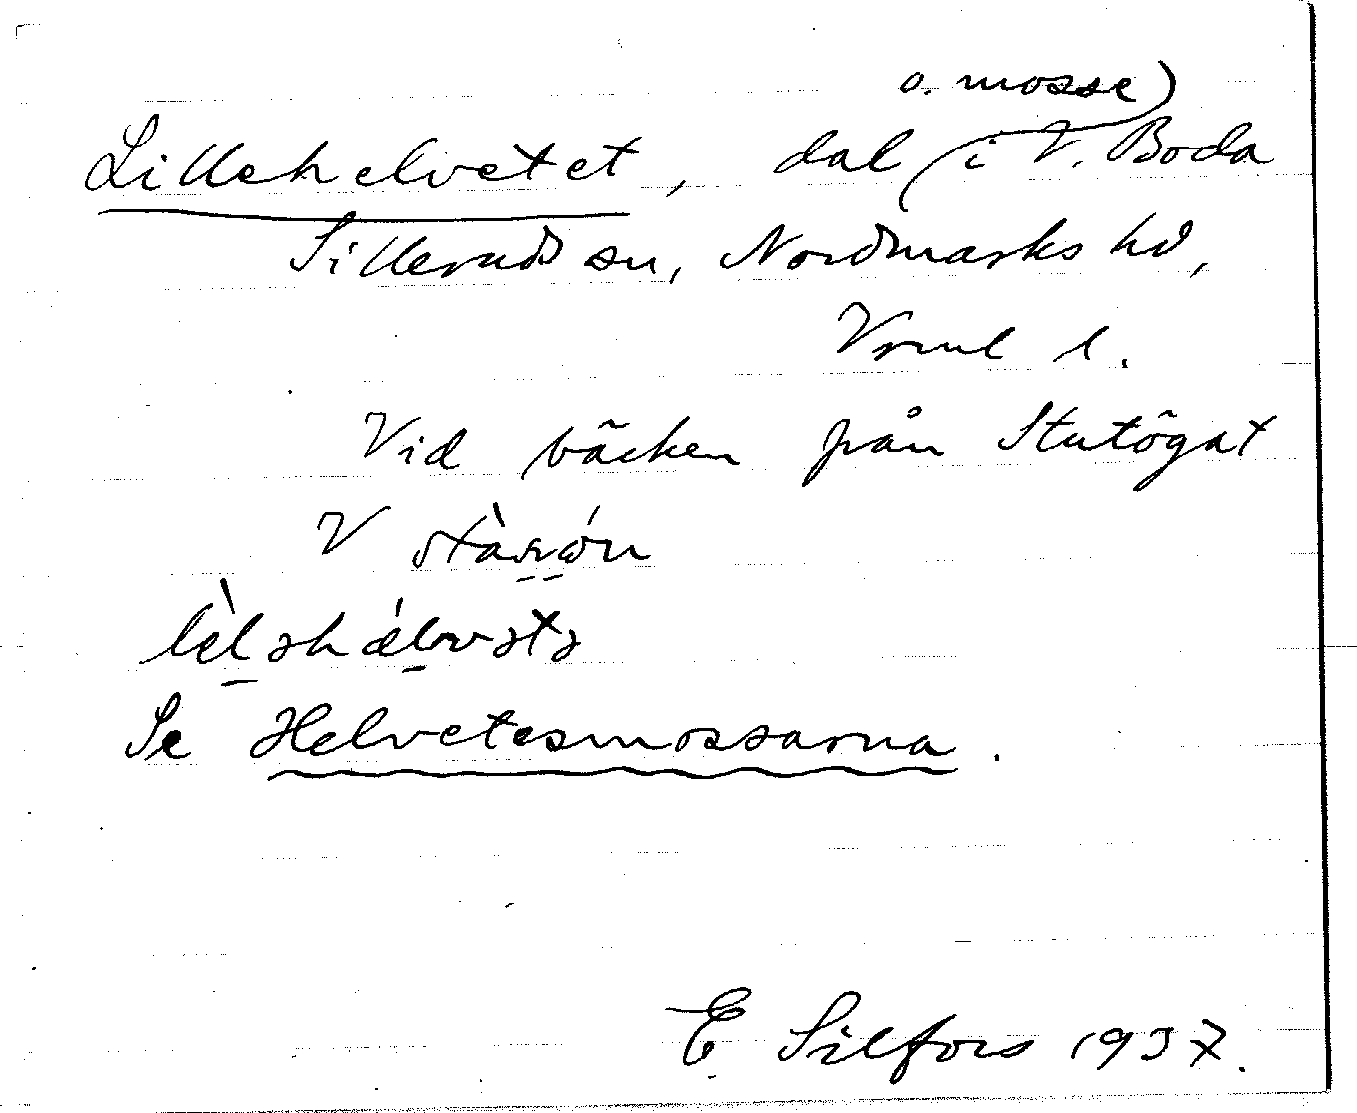 o. mosse)
Lillehelvetet, dal i V. Boda
Silleruds sn, Nordmarks hd,
Vrml l.
Vid bäcken från Stutögat
V
lèləhælvətə
Se Helvetesmossarna.
E Silfors 1937.